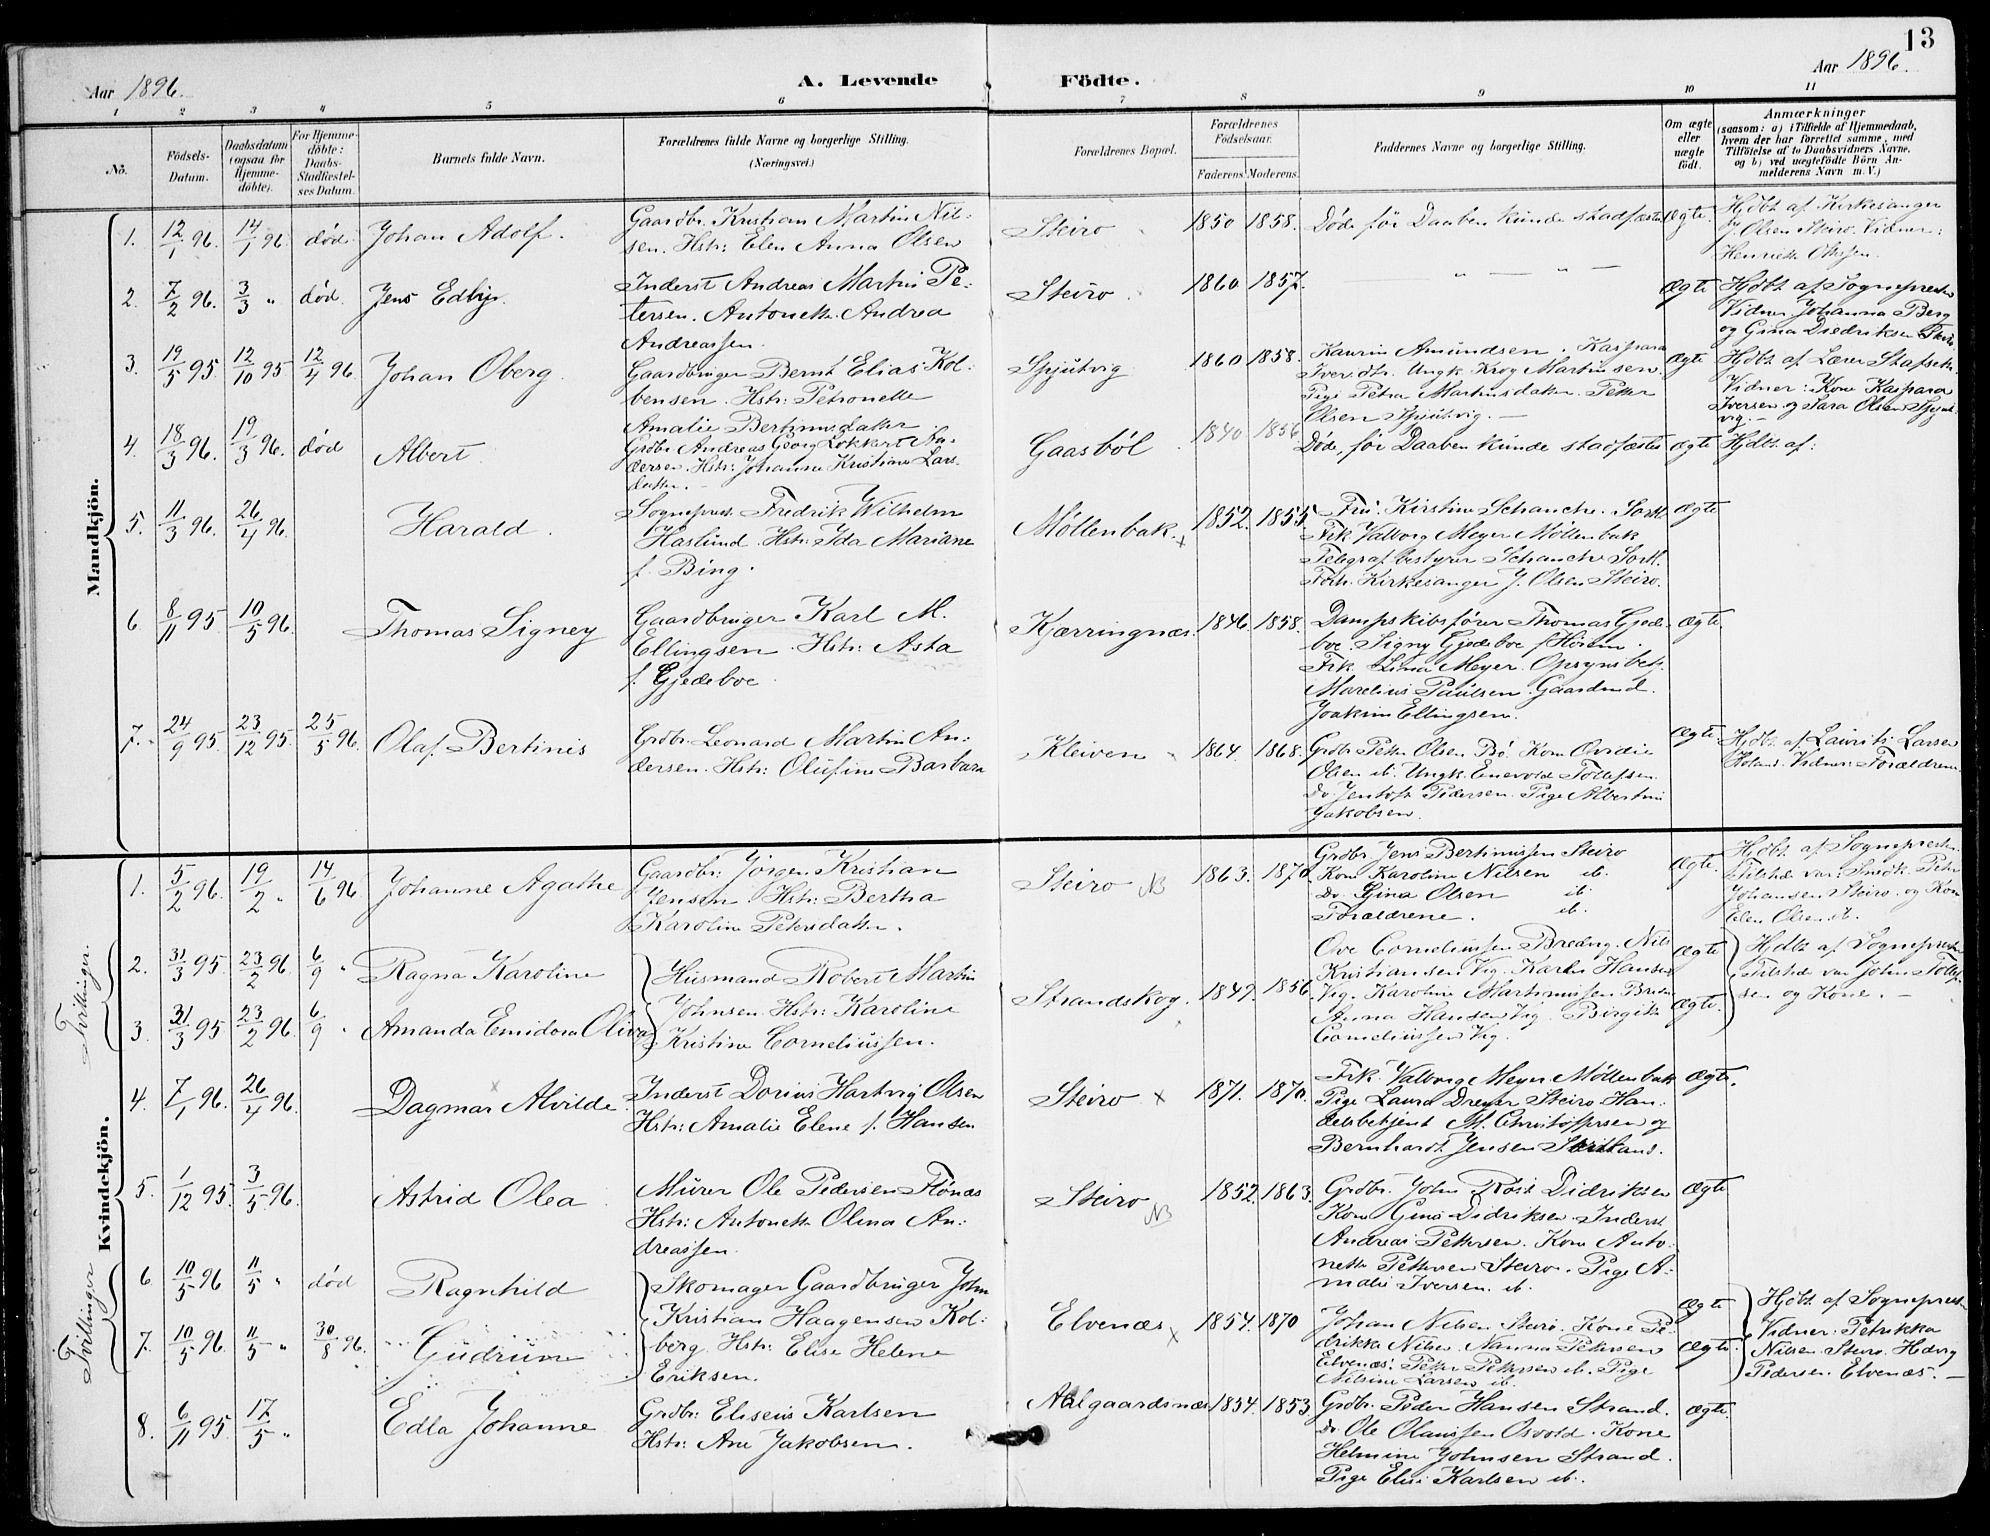 13
Aar 1896.
A. Levende Födte.
Aar 1896.
1 2 3 4 5 6 7 8 9 10 11
No.
Födsels-Datum.
Daabsdatum (ogsaa for Hjemme-döbte).
For Hjemme-döbte: Daabs-Stadfæstel-ses Datum.
Barnets fulde Navn.
Forældrenes fulde Navne og borgerlige Stilling.
(Næringsvei.)
Forældrenes Bopæl.
Forældrenes Födselsaar.
Faderens. Moderens.
Faddernes Navne og borgerlige Stilling.
Om ægte eller uægte födt.
Anmærkninger
(saasom: a) i Tilfælde af Hjemmedaab,
hvem der har forrettet samme, med
Tilföielse af to Daabsvidners Navne,
og b) ved uægtefödte Börn An-
melderens Navn m. V.)
Mandkjön.
1. 12/1 96. 14/1 96. død. Johan Adolf.
Gaardbr. Kristian Martin Nil-
sen. Hstr: Elen Anna Olsen
Steiro 1850 1858.
Døde før Daaben kunde stadfæstes
Ægte.
Hjdbt. af Kirkesanger
J. Olsen Steiro. Vidner:
Henriette
2. 7/2 96. 3/3 " død. Jens
Inderst Andreas Martin Pe-
tersen. Antonette Andrea
Andreassen.
Steiro. 1860 1857.
— " — " —
Ægte
Hjdbt. af Sognepresten
Vidner Johanna Berg
og Gina Diedriksen
3. 19/5 95. 12/10 95 12/4 96 Johan Oberg
Gaardbruger Bernt Elias Kol-
bensen. Hstr: Petronelle
Amalie
Spjutvig 1860 1858.
Kaurin Amundsen. Kaspara
Iversdtr. Ungk. Krog Martinsen.
Pige Petra Martinsdatter. Petter
Olsen Spjutvig. —
Ægte
Hjdbt. af Lærer
Vidner: Kone Kaspara
Iversen og Sara Olsen Spjut-
vig.
4. 18/3 96. 19/3 96. død Albert
Grdbr. Andreas Georg Løkkert An-
dersen. Hstr: Johanna Kristine Lars-
datter. —
Gaasbøl 1840 1856
Døde, før Daaben kunde stadfæstes
Ægte
Hjdbt. af:
5. 11/3 96. 26/4 96. Harald.
Sogneprest Fredrik Wilhelm
Haslund. Hstr: Ida Mariane
f. Bing.
Møllenbak. x 1852. 1855.
Fru Kirstine Schanche. Sortl.
Frk Valborg Meyer Møllenbak
Telegrafbestyrer Schanche Sortl.
Forh. Kirkesanger J. Olsen Steiro.
Ægte
6. 8/11 95 10/5 96. Thomas Signey
Gaardbruger Karl M.
Ellingsen. Hstr: Asta
f. Gjedeboe.
Kjærringnæs. 1846. 1858.
Dampskibsfører Thomas Gjede-
boe. Signy Gjedeboe f.
Frk. Lina Meyer. Opsynsbet.
Marelius Paulsen. Gaardmd.
Joakim Ellingsen.
Ægte
7. 24/9 95. 23/12 95. 25/5 96. Olaf Bertinis
Grdbr. Leonard Martin An-
dersen. Hstr: Olufine Barbara
Kleiven 1864. 1868.
Grdbr. Petter Olsen Bø. Kone Ovidie
Olsen ib. Ungk. Enevold Tollefsen
Do. Jentoft Pedersen. Pige Albertine
Jakobsen.
Ægte
Hjdbt. af Laurits Larsen
Holand. Vidner: Forældrene.
Kvindekjön.
1. 5/2 96. 19/2 " 14/6 96 Johanne Agathe
Gaardbr: Jørgen Kristian
Jensen Hstr: Bertha
Karoline Petersdatter.
Steiro NB 1863. 1870.
Grdbr Jens Bertinussen Steiro
Kone Karoline Nilsen ib.
Do Gina Olsen ib.
Forældrene. ib.
Ægte.
Hjdbt. af Sognepresten.
Tilstede var: Petter
Johansen Steiro. og Kone
Elen Olsen ib.
Tvillinger.
2. 31/3 95. 23/2 96 6/9 " Ragna Karoline
3. 31/3 95 23/2 96. 6/9 " Amanda Emidora Oliva
Husmand Robert Martin
Johnsen. Hstr: Karoline
Kristine Corneliussen.
Strandskog. x 1849. 1856.
Ove Corneliussen Breding. Nils
Kristiansen Vig. Hansen
Vig. Karoline Martinussen
Anna Hansen Vig. Birgitte
Corneliussen Vig.
Ægte
Ægte.
Hjdbt. af Sognepresten
Tilstede var John Tollef-
sen og Kone. —
4. 7/1 96. 26/4 96. Dagmar Alvilde
Inderst Dorius Hartvig Olsen
Hstr: Amalie Elene f. Hansen
Steiro x 1871. 1870.
Frk. Valborg Meyer Møllenbak
Pige Laura Dreyer Steiro. Han-
delsbetjent M. Christoffersen og
Bernhardt Jensen
Ægte.
5. 1/12 95. 3/5 96. Astrid Olea
Murer Ole Pedersen Flønæs
Hstr: Antonette Olina An-
dreassen.
Steiro NB 1852. 1863.
Grdbr. John Rost Didriksen
Kone Gina Didriksen. Inderst
Andreas Pettersen. Kone Anto-
nette Pettersen Steiro. Pige A-
malie Iversen. ib.
Ægte
Tvillinger
6 10/5 96 11/5 " død Ragnhild
7. 10/5 96. 11/5 " 30/8 96. Gudrun
Skomager Gaardbruger John
Kristian Haagensen Kol-
berg. Hstr: Elise Helene
Eriksen.
Elvenæs x 1854. 1870
Johan Nilsen Steiro. Kone Pe-
drikke Nilsen. Nanna Petersen
Elvenæs. Petter Pettersen ib. Pige
Nilsine Larsen ib.
Ægte
Ægte.
Hjdbt. af Sognepresten
Vidner: Petrikka
Nilsen Steiro. Hedvig
Pedersen Elvenæs. —
8. 6/11 95. 17/5 " Edla Johanne
Grdbr: Eliseus Karlsen
Hstr: Ane Jakobsen.
Aalgaardsnæs 1854. 1853.
Grdbr. Peder Hansen Strand.
Do Ole Olaussen Osvold. Kone
Helmine Johnsen Strand.
Pige Elise Karlsen ib.
Ægte.